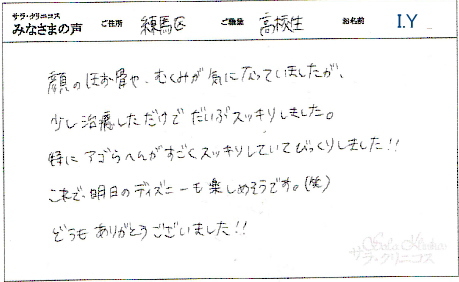 サラ・クリニコス
みなさまの声 ご住所 練馬区 ご職業 高校生 お名前 I.Y
顔のほお骨や、むくみが気になっていましたが、
少し治療しただけでだいぶスッキリしました。
特にアゴらへんがすごくスッキリしていてびっくりしました!!
これで、明日のディズニーも楽しめそうです。(笑)
どうもありがとうございました!!
サラ・クリニコス